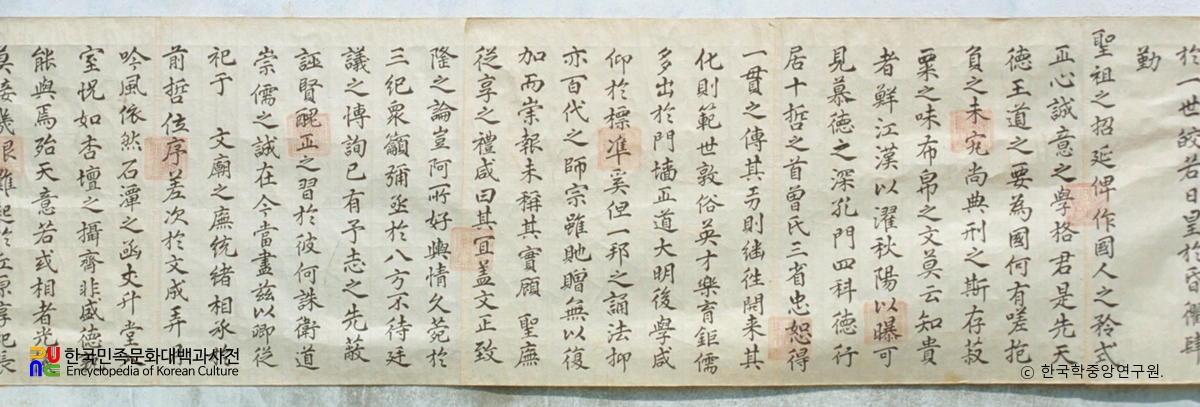 於一世皎若日星於
勤
聖祖之招延俾作國人之矜式
正心誠意之學格君是先天
德王道之要為國何有嗟抱
負之未究尚典刑之斯存菽
粟之味布帛之文莫云知貴
者鮮江漢以濯秋陽以曝可
見慕德之深孔門四科德行
居十哲之首曾氏三省忠恕得
一貫之傳其功則繼徃開来其
化則範世敦俗英才樂育鉅儒
多出於門墻正道大明後學咸
仰於標準奚但一邦之誦法抑
亦百代之師宗雖貤贈無以復
加而崇報未稱其實顧 聖廡
從享之禮咸曰其宜盖文正致
隆之論豈阿所好輿情久菀於
三紀衆籲彌亟於八方不待廷
議之博詢已有予志之先蔽
誣賢醜正之習於彼何誅衛道
崇儒之誠在今當盡茲以卿從
祀于 文廟之廡統緒相承
前哲位序差次於文成弄
吟風依然石潭之函丈升堂
室怳如杏壇之攝齊非盛德
能與焉殆天意若或相者光
莫接幾恨難起於丘原享祀長
한국민족문화대백과사전
Encyclopedia of Korean Culture
© 한국학중앙연구원.